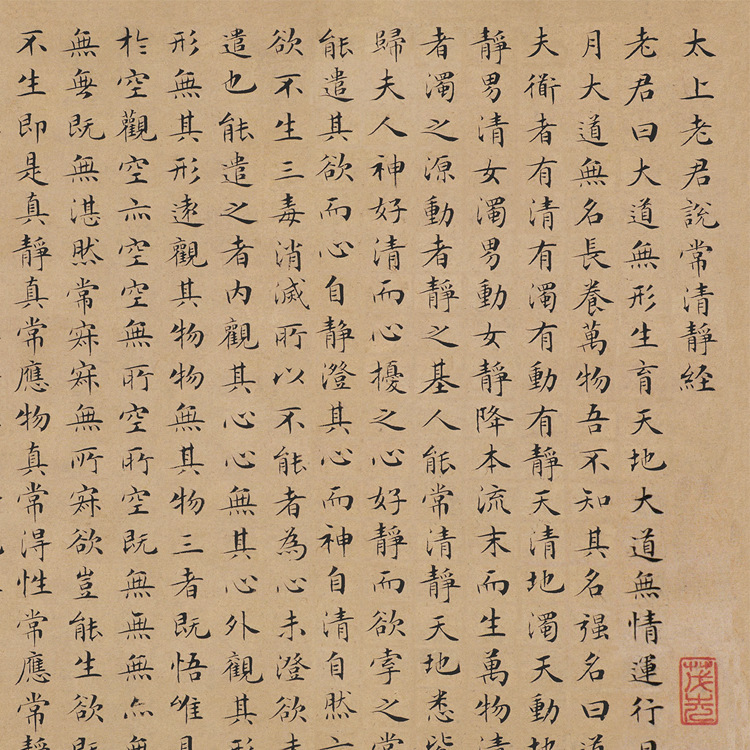 太上老君說常清靜経
老君曰大道無形生育天地大道無情運行日
月大道無名長養萬物吾不知其名强名曰道
夫衜者有清有濁有動有靜天清地濁天動地
靜男清女濁男動女靜降本流末而生萬物清
者濁之源動者靜之基人能常清靜天地悉皆
歸夫人神好清而心擾之心好靜而欲牽之常
能遣其欲而心自靜澄其心而神自清自然六
欲不生三毒消滅所以不能者為心未澄欲未
遣也能遣之者內觀其心心無其心外觀其形
形無其形遠觀其物物無其物三者既悟唯見
於空觀空亦空空無所空所空既無無無亦無
無無既無湛然常寂寂無所寂欲豈能生欲既
不生即是真靜真常應物真常得性常應常靜